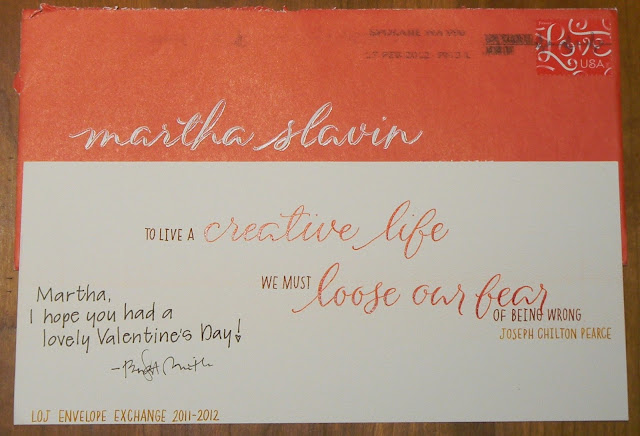 SPOKANE WA 992
17 FEB 2012 PM
Love
USA
martha slavin
TO LIVE A creative life
WE MUST loose our fear
OF BEING WRONG
JOSEPH CHILTON PEARCE
Martha,
I hope you had a
lovely Valentine's Day!
LOJ ENVELOPE EXCHANGE 2011-2012